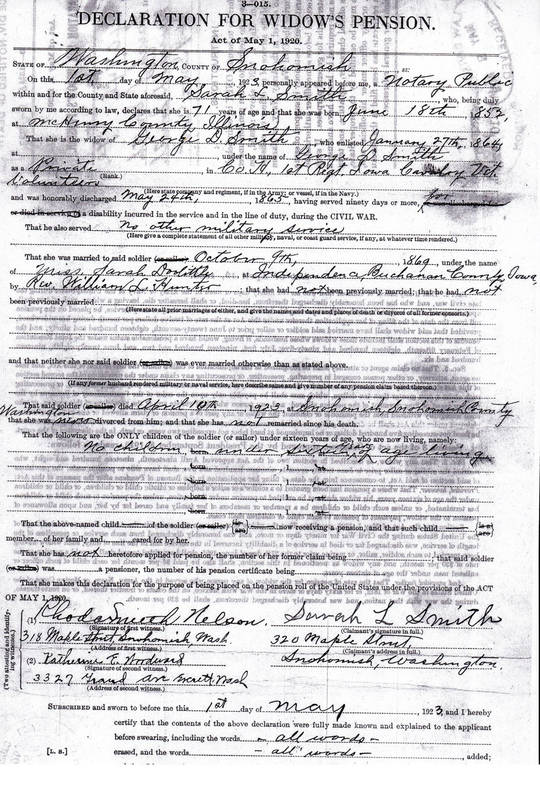 3—015.
DECLARATION FOR WIDOW'S PENSION.
Act of May 1, 1920.
STATE OF Washington, COUNTY OF Snohomish, ss:
On this 1st day of May, 1923, personally appeared before me, a Notary Public
within and for the County and State aforesaid, Sarah L. Smith, who, being duly
sworn by me according to law, declares that she is 71 years of age and that she was born June 18th, 1852,
at McHenry County Illinois
That she is the widow of George D. Smith, who enlisted January 27th, 1864,
at under the name of George D Smith
as a Private, in Co. H, 1st Regt. Iowa Cavalry Vet.
(Rank.)
Volunteers
(Here state company and regiment, if in the Army; or vessel, if in the Navy.)
and was honorably discharged May 24th, 1865, having served ninety days or more, for
or died in service of a disability incurred in the service and in the line of duty, during the CIVIL WAR.
That he also served No other military service
(Here give a complete statement of all other military, naval, or coast guard service, if any, at whatever time rendered.)
That she was married to said soldier (or sailor) October 9th, 1869, under the name
of Miss Sarah, at Independence, Buchanan County Iowa,
by Rev. William L. Hunter; that she had not been previously married; that he had not
been previously married
(Here state all prior marriages of either, and give the names and dates and places of death or divorce of all former consorts.)
and that neither she nor said soldier (or sailor) was ever married otherwise than as stated above.
(If any former husband rendered military or naval service, here describe same and give number of any pension claim based thereon.)
That said soldier (or sailor) died April 10th, 1923, at Snohomish, Snohomish County
Washington
that she was never divorced from him; and that she has not remarried since his death.
That the following are the ONLY children of the soldier (or sailor) under sixteen years of age, who are now living, namely:
No children born under sixteen age living
born
born
born
born
That the above-named child of the soldier (or sailor) {is are} now receiving a pension, and that such child {is a are}
member of her family and cared for by her.
That she has not heretofore applied for pension, the number of her former claim being ; that said soldier
(or sailor) was a pensioner, the number of his pension certificate being
That she makes this declaration for the purpose of being placed on the pension roll of the United States under the provisions of the ACT
OF MAY 1, 1920.
(1) Rhoda Smith Nelson. Sarah L Smith
(Signature of first witness.) (Claimant's signature in full.)
318 Maple Street Snohomish Wash 320 Maple Street
(Address of first witness.) (Claimant's address in full.)
(2) Katherine E. Woodward Snohomish, Washington.
(Signature of second witness.)
3327 Grand Ave Everett Wash
(Address of second witness.)
SUBSCRIBED and sworn to before me this 1st day of May, 1923, and I hereby
certify that the contents of the above declaration were fully made known and explained to the applicant
before swearing, including the words — all words —
[L. S.] erased, and the words — all words —, added;